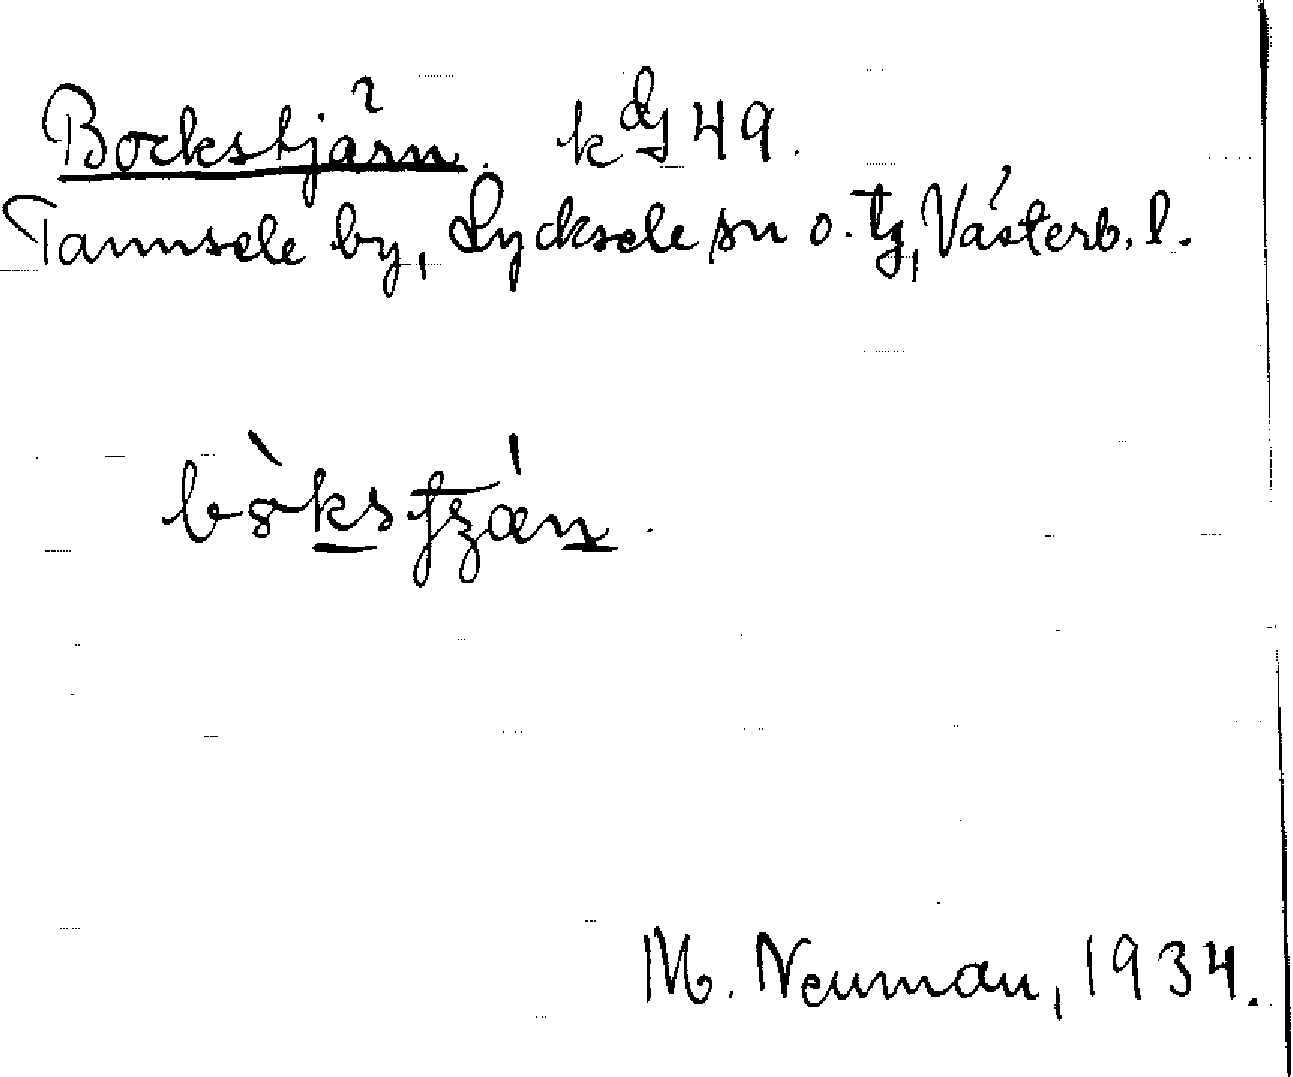 Bockstjärn. k dG 49.
Tannsele by, Lycksele sn o. tg, Västerb. l.
M. Neuman, 1934.